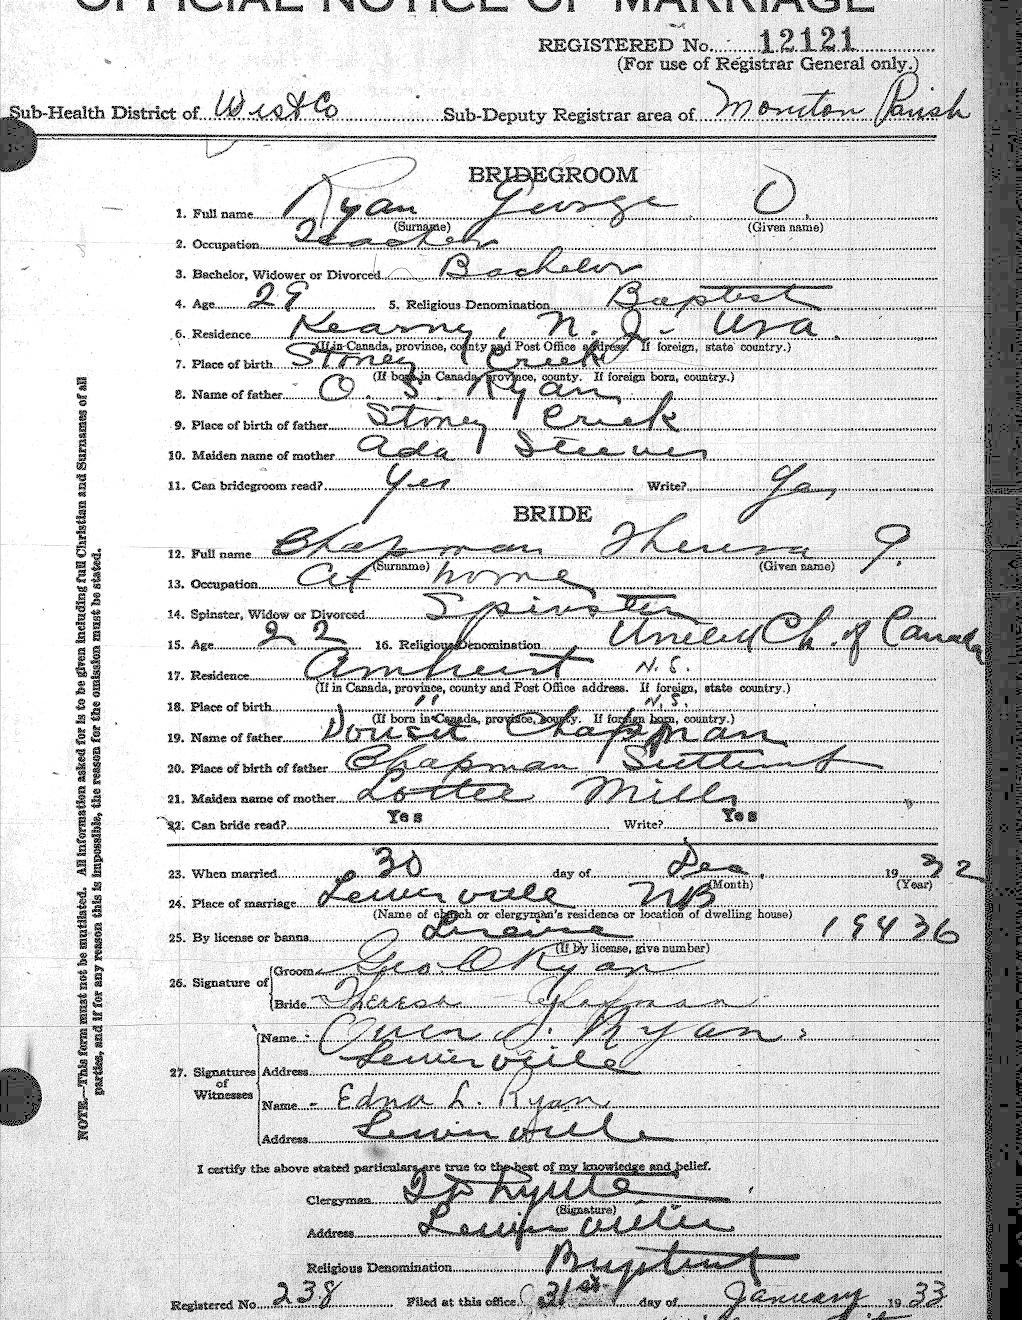 OFFICIAL NOTICE OF MARRIAGE
REGISTERED No. 12121
(For use of Registrar General only.)
Sub-Health District of West Co Sub-Deputy Registrar area of Moncton Parish
BRIDEGROOM
1. Full name Ryan George O.
(Surname) (Given name)
2. Occupation Teacher
3. Bachelor, Widower or Divorced Bachelor
4. Age 29 5. Religious Denomination Baptist
6. Residence Kearny, N. J. Usa.
(If in Canada, province, county and Post Office address. If foreign, state country.)
7. Place of birth Stoney Creek
(If born in Canada, province, county. If foreign born, country.)
8. Name of father O. S. Ryan
9. Place of birth of father Stoney Creek
10. Maiden name of mother Ada Steeves
11. Can bridegroom read? Yes Write? Yes
BRIDE
12. Full name Chapman Theresa
(Surname) (Given name)
13. Occupation At home
14. Spinster, Widow or Divorced Spinster
15. Age 22 16. Religious Denomination United Ch. of Canada
17. Residence Amherst N.S.
(If in Canada, province, county and Post Office address. If foreign, state country.)
18. Place of birth " N.S.
(If born in Canada, province, county. If foreign born, country.)
19. Name of father Chapman
20. Place of birth of father Chapman Settlement
21. Maiden name of mother Lottie Mills
22. Can bride read? Yes Write? Yes
23. When married 30 day of Dec. 1932
(Month) (Year)
24. Place of marriage Lewisville NB
(Name of church or clergyman's residence or location of dwelling house)
25. By license or banns License 19436
(If by license, give number)
26. Signature of
Groom Geo O Ryan
Bride Theresa Chapman
27. Signatures of Witnesses
Name Owen S. Ryan
Address Lewisville
Name - Edna L. Ryan
Address Lewisville
I certify the above stated particulars are true to the best of my knowledge and belief.
Clergyman
(Signature)
Address Lewisville
Religious Denomination Baptist
Registered No. 238 Filed at this office 31st day of January 1933
NOTE.—This form must not be mutilated. All information asked for is to be given including full Christian and Surnames of all
parties, and if for any reason this is impossible, the reason for the omission must be stated.